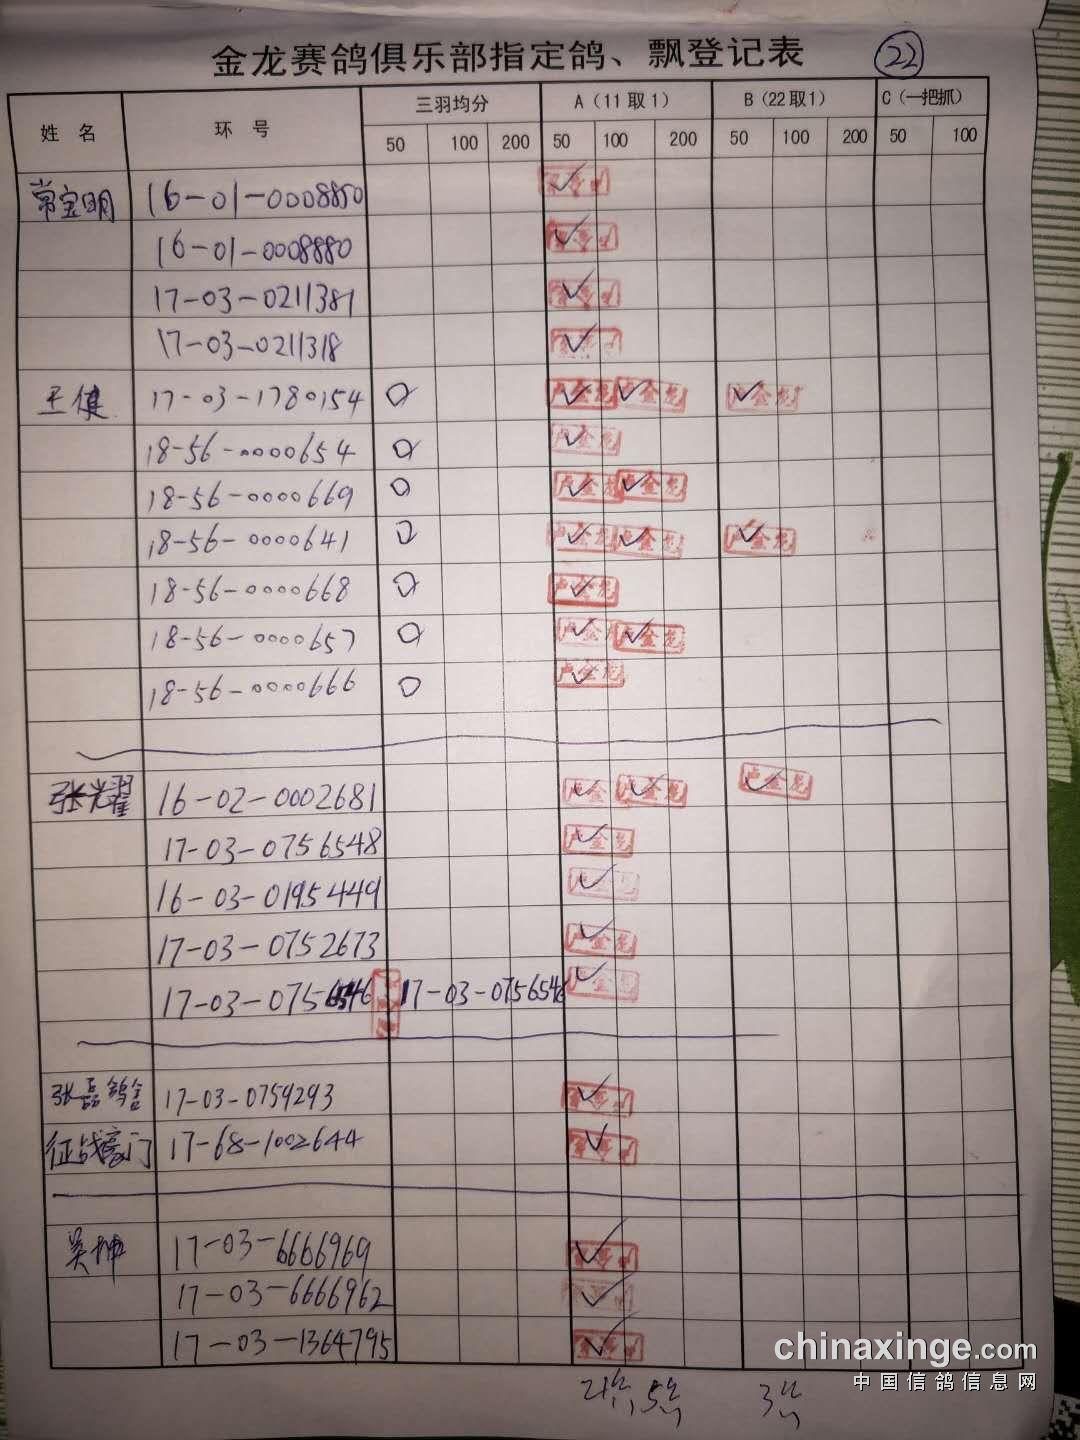 金龙赛鸽俱乐部指定鸽、飘登记表 22
姓 名 环 号 三羽均分 A（11取1） B（22取1） C（一把抓）
50 100 200 50 100 200 50 100 200 50 100
常宝明 16-01-0008850
16-01-0008880
17-03-0211381
17-03-0211318
王健 17-03-1780154 卢金龙 卢金龙 卢金龙
18-56-0000654 卢金龙
18-56-0000669 卢金龙 卢金龙
18-56-0000641 卢金龙 卢金龙 卢金龙
18-56-0000668 卢金龙
18-56-0000657 卢金 卢金龙
18-56-0000666 卢金龙
张光耀 16-02-0002681 卢金 卢金龙 卢金龙
17-03-0756548 卢金龙
16-03-0195449
17-03-0752673 卢金龙
17-03-0756546 17-03-0756546 卢金龙
张磊鸽舍 17-03-0759293
征战豪门 17-68-1002644
吴坤 17-03-6666969
17-03-6666962
17-03-1364795
21 5 3
chinaxinge.com
中国信鸽信息网